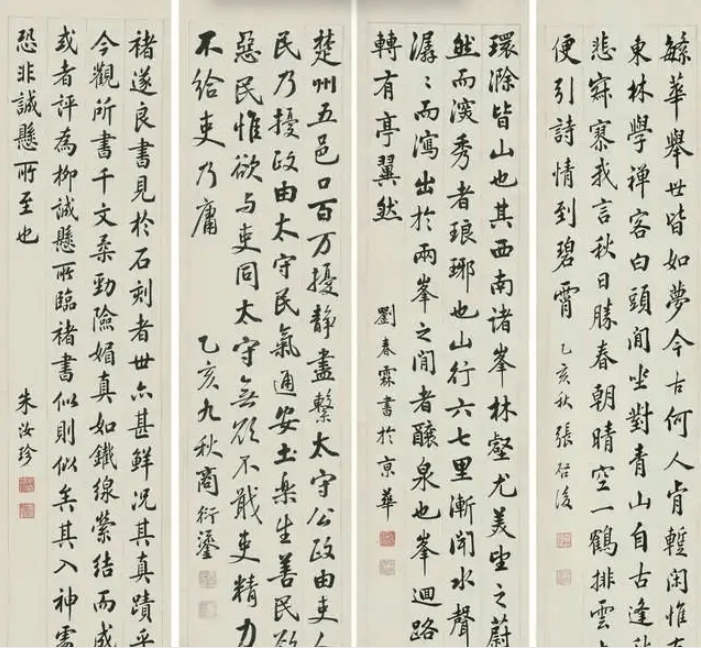 緐華舉世皆如夢今古何人肯蹔閑惟有
東林學禪客白頭閒坐對青山自古逢秋
悲寂寥我言秋日勝春朝晴空一鶴排雲上
便引詩情到碧霄 乙亥秋張啓後
環滁皆山也其西南諸峯林壑尤美望之蔚
然而深秀者琅琊也山行六七里漸聞水聲
潺〻而瀉出於兩峯之間者釀泉也峯迴路
轉有亭翼然 劉春霖書於京華
楚州五邑口百万擾靜盡繫太守公政由吏人
民乃擾政由太守民氣通安土樂生善民欲
惡民惟欲与吏同太守無欲不戢吏精力
不給吏乃庸 乙亥九秋商衍瀛
褚遂良書見於石刻者世亦甚鮮況其真蹟乎
今觀所書千文柔勁險媚真如鐵線縈結而成
或者評為柳誠懸所臨褚書似則似矣其入神處
恐非誠懸所至也 朱汝珍